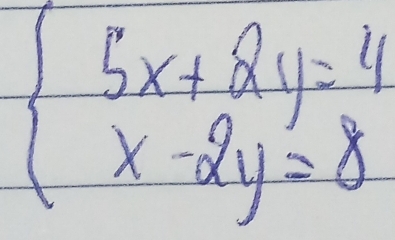 5x + 2y = 4
x - 2y = 8